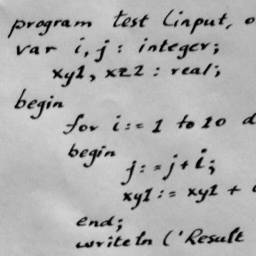 program test (input, o
var i, j : integer;
xy1, xz2 : real;
begin
for i := 1 to 10 d
begin
j := j + i;
xy1 := xy1 +
end;
writeln ('Result